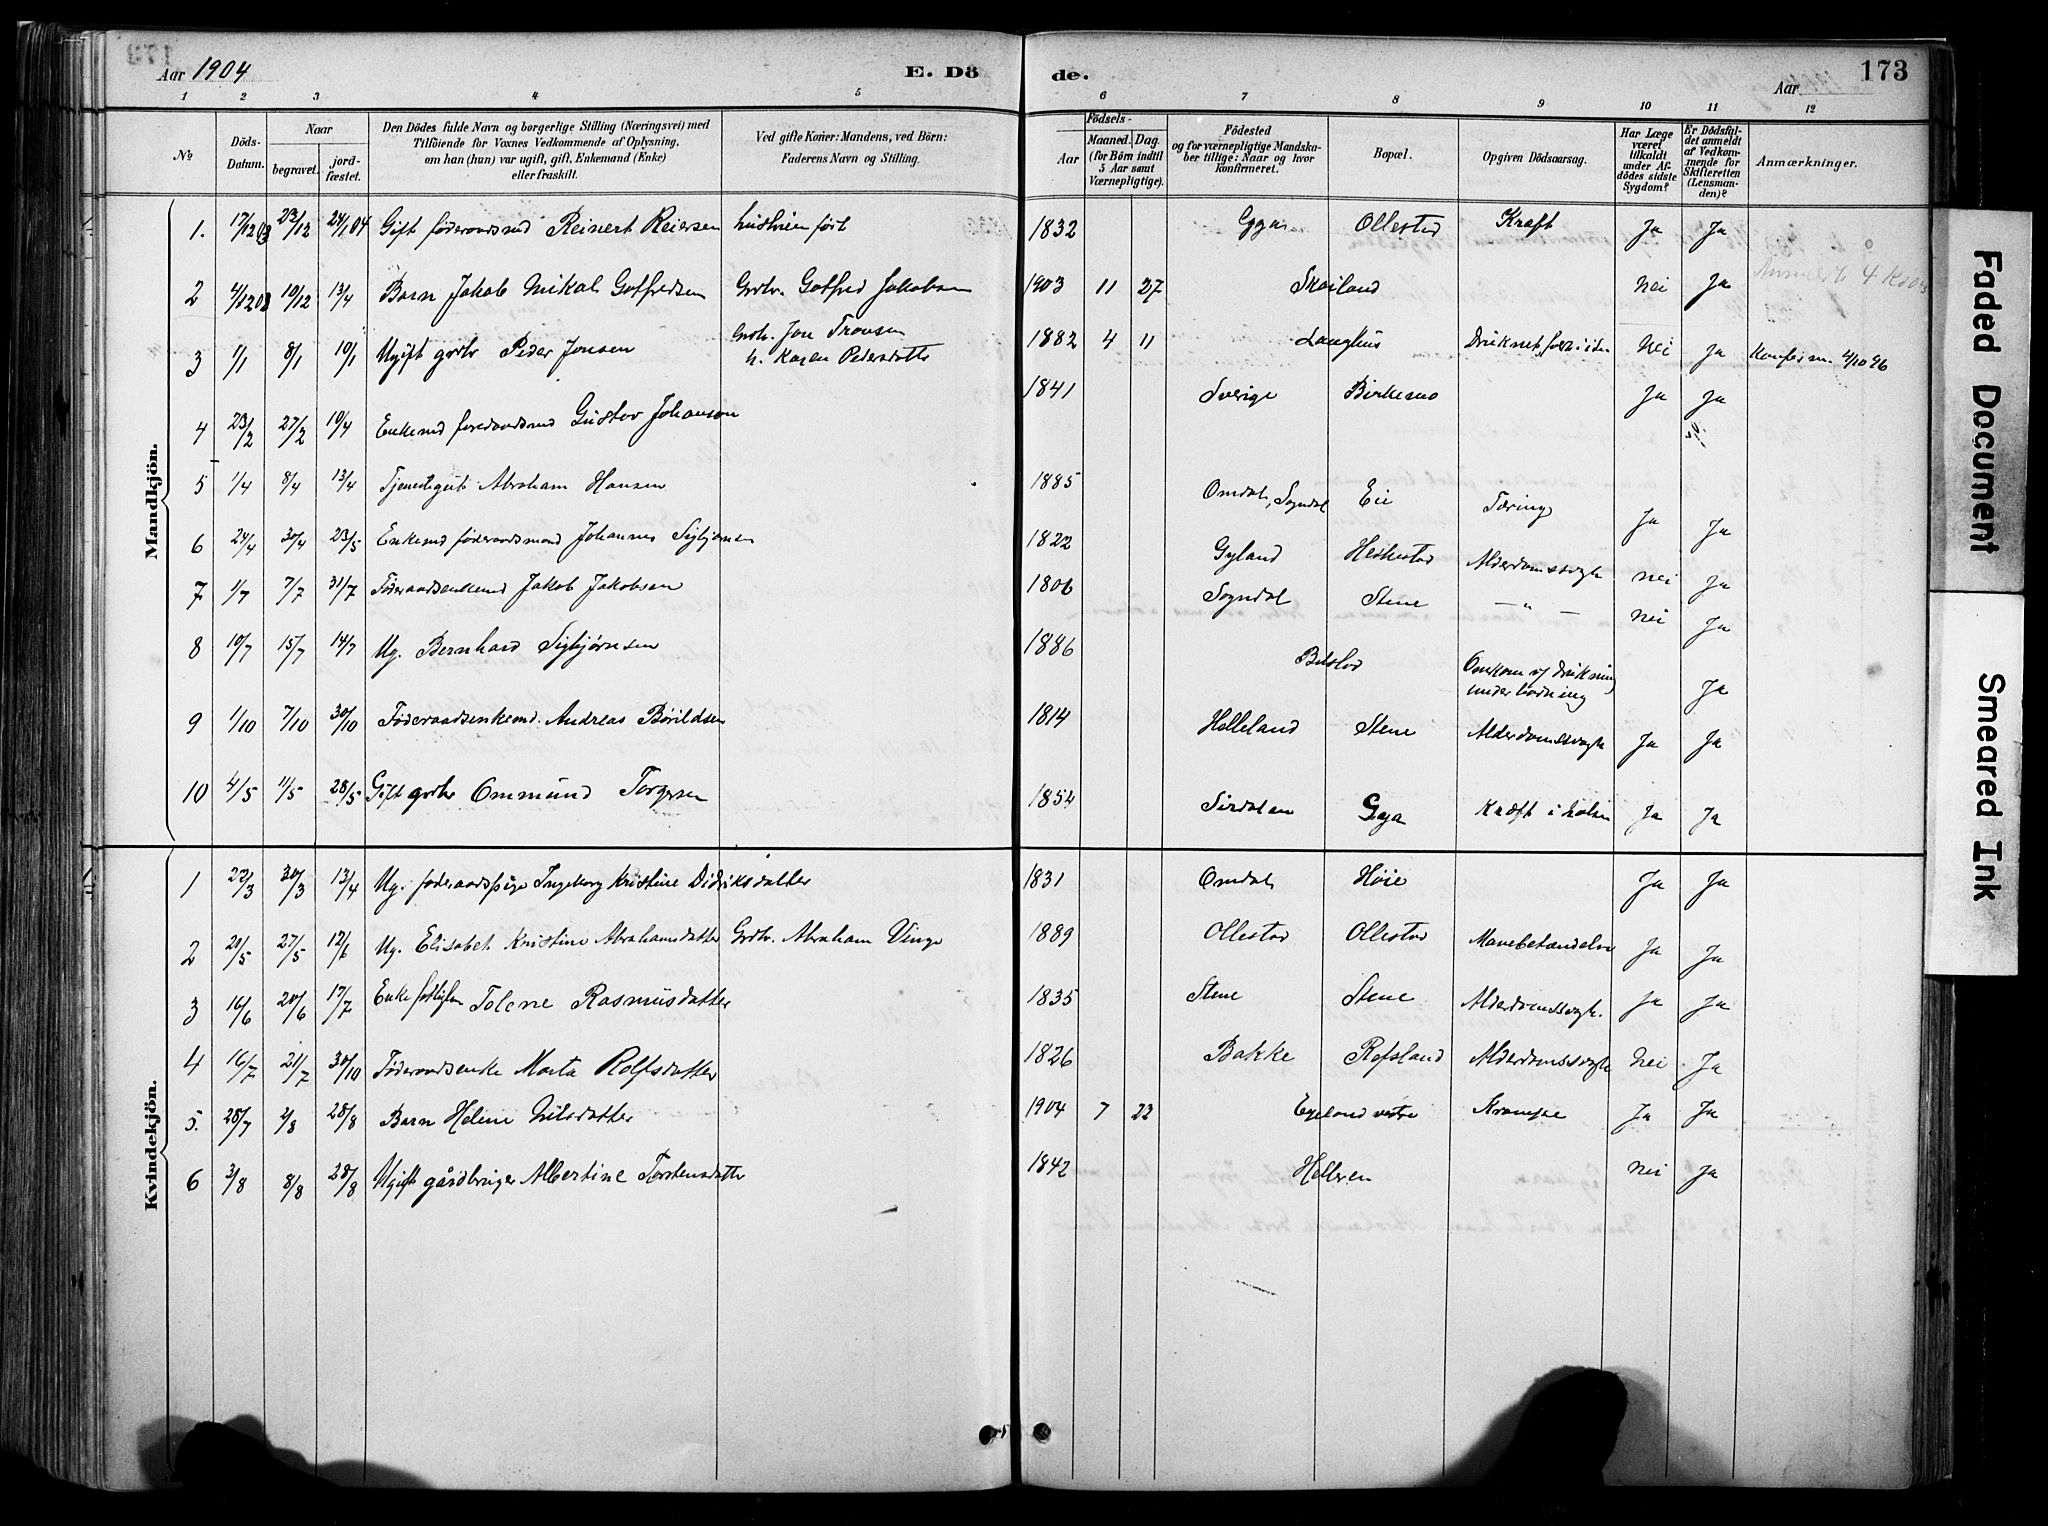 Aar 1904
E. Dö
de.
Aar
173
1 2 3 4 5 6 7 8 9 10 11 12
№
Döds-
Datum.
Naar
begravet.
jord-
fæstet.
Den Dödes fulde Navn og borgerlige Stilling (Næringsvei) med
Tilföiende for Voxnes Vedkommende af Oplysning,
om han (hun) var ugift, gift, Enkemand (Enke)
eller fraskilt.
Ved gifte Koner: Mandens, ved Börn:
Faderens Navn og Stilling.
Födsels-
Aar
Maaned.
Dag.
(for Börn indtil
5 Aar samt
Værnepligtige).
Födested
og for værnepligtige Mandska-
ber tillige: Naar og hvor
konfirmeret.
Bopæl.
Opgiven Dödsaarsag.
Har Læge
været
tilkaldt
under Af-
dödes sidste
Sygdom?
Er Dödsfal-
det anmeldt
af Vedkom-
mende for
Skifteretten
(Lensman-
den)?
Anmærkninger.
Mandkjön.
1. 17/12 03 23/12 24/1 04 Gift føderaadsmd Reinert Reiersen 1832 Gyga Ollestad Kræft Ja Ja
2 4/12 03 10/12 13/4 Barn Jakob Mikal Gotfredsen Grdbr. Gotfred Jakobsen 1903 11 27 Skailand Nei Ja
3 1/1 8/1 10/1 Ugift grdbr Peder Jonsen Grdb. Jon Tronsen
h. Karen Pedersdatter 1882 4 11 Langhus Druknet, for i isen Nei Ja Konfirm. 4/10 96
4 23/2 27/2 10/4 Enkemd føderaadsmd Gustav Johanson 1841 Sverige Birkemo Ja Ja
5 1/4 8/4 13/4 Tjenestegut Abraham Hansen 1885 Omdal, Sogndal Eie Tæring Ja Ja
6 24/4 30/4 23/5 Enkemd føderaadsmand Johannes Sigbjørnsen 1822 Gyland Heskestad Alderdomssvagh. nei Ja
7 1/7 7/7 31/7 Føderaadsenkemd Jakob Jakobsen 1806 Sogndal Stene — " — nei Ja
8 10/7 15/7 14/7 Ug. Bernhard Sigbjørnsen 1886 Bilstad Omkom v/ drukning
under badning Ja
9 1/10 7/10 30/10 Føderaadsenkemd. Andreas Bårildsen 1814 Helleland Stene Alderdomssvagh Ja Ja
10 4/5 11/5 28/5 Gift grdbr Ommund Torgersen 1854 Sirdalen Gya Kræft i halsen Ja Ja
Kvindekjön.
1 22/3 30/3 13/4 Ug. føderaadspige Ingeborg Kristine Didriksdatter 1831 Omdal Høie Ja Ja
2 20/5 27/5 12/6 Ug. Elisabet Kristine Abrahamsdatter Grdbr. Abraham Vinge 1889 Ollestad Ollestad Mavebetændelse Ja Ja
3 16/6 20/6 17/7 Enke Tolene Rasmusdatter 1835 Stene Stene Alderdomssvagh. Ja Ja
4 16/7 21/7 30/10 Føderaadsenke Marta Rolfsdatter 1826 Bakke Refsland Alderdomssvagh Nei Ja
5. 28/7 2/8 28/8 Barn Helene Nilsdatter 1904 7 23 Egeland vestre Krampe Ja Ja
6 3/8 8/8 28/8 Ugift gårdbruger Albertine Torstensdatter 1842 Helleren Nei Ja
Faded Document
Smeared Ink